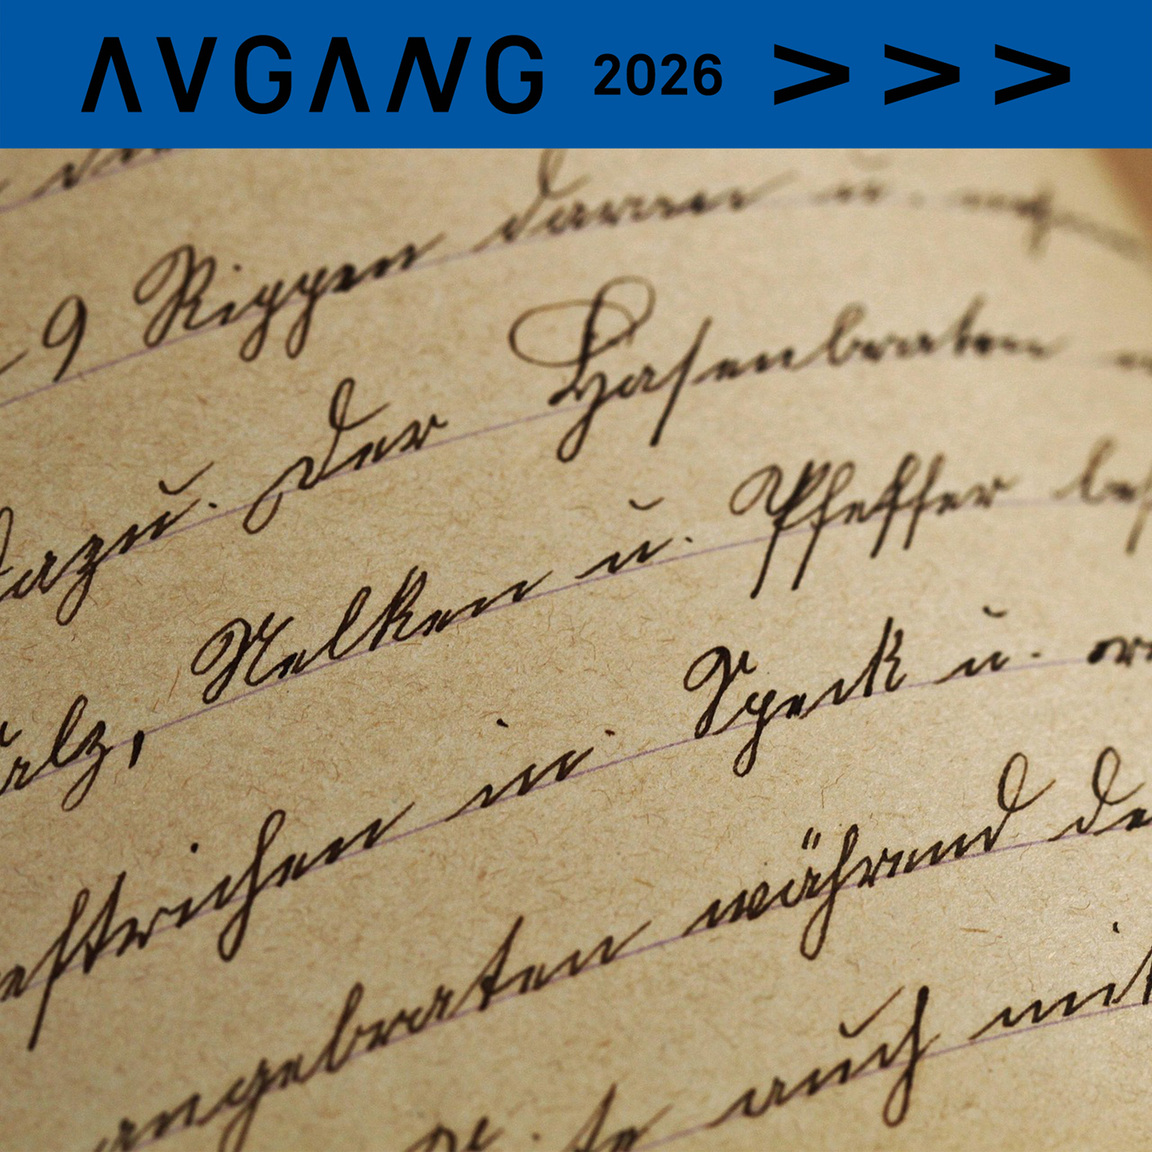 AVGANG 2026 >>>
9 Rippen daran u.
dazu. Der Hasenbraten
Salz, Nelken u. Pfeffer
estrichen in Speck u.
angebraten während
auch mit